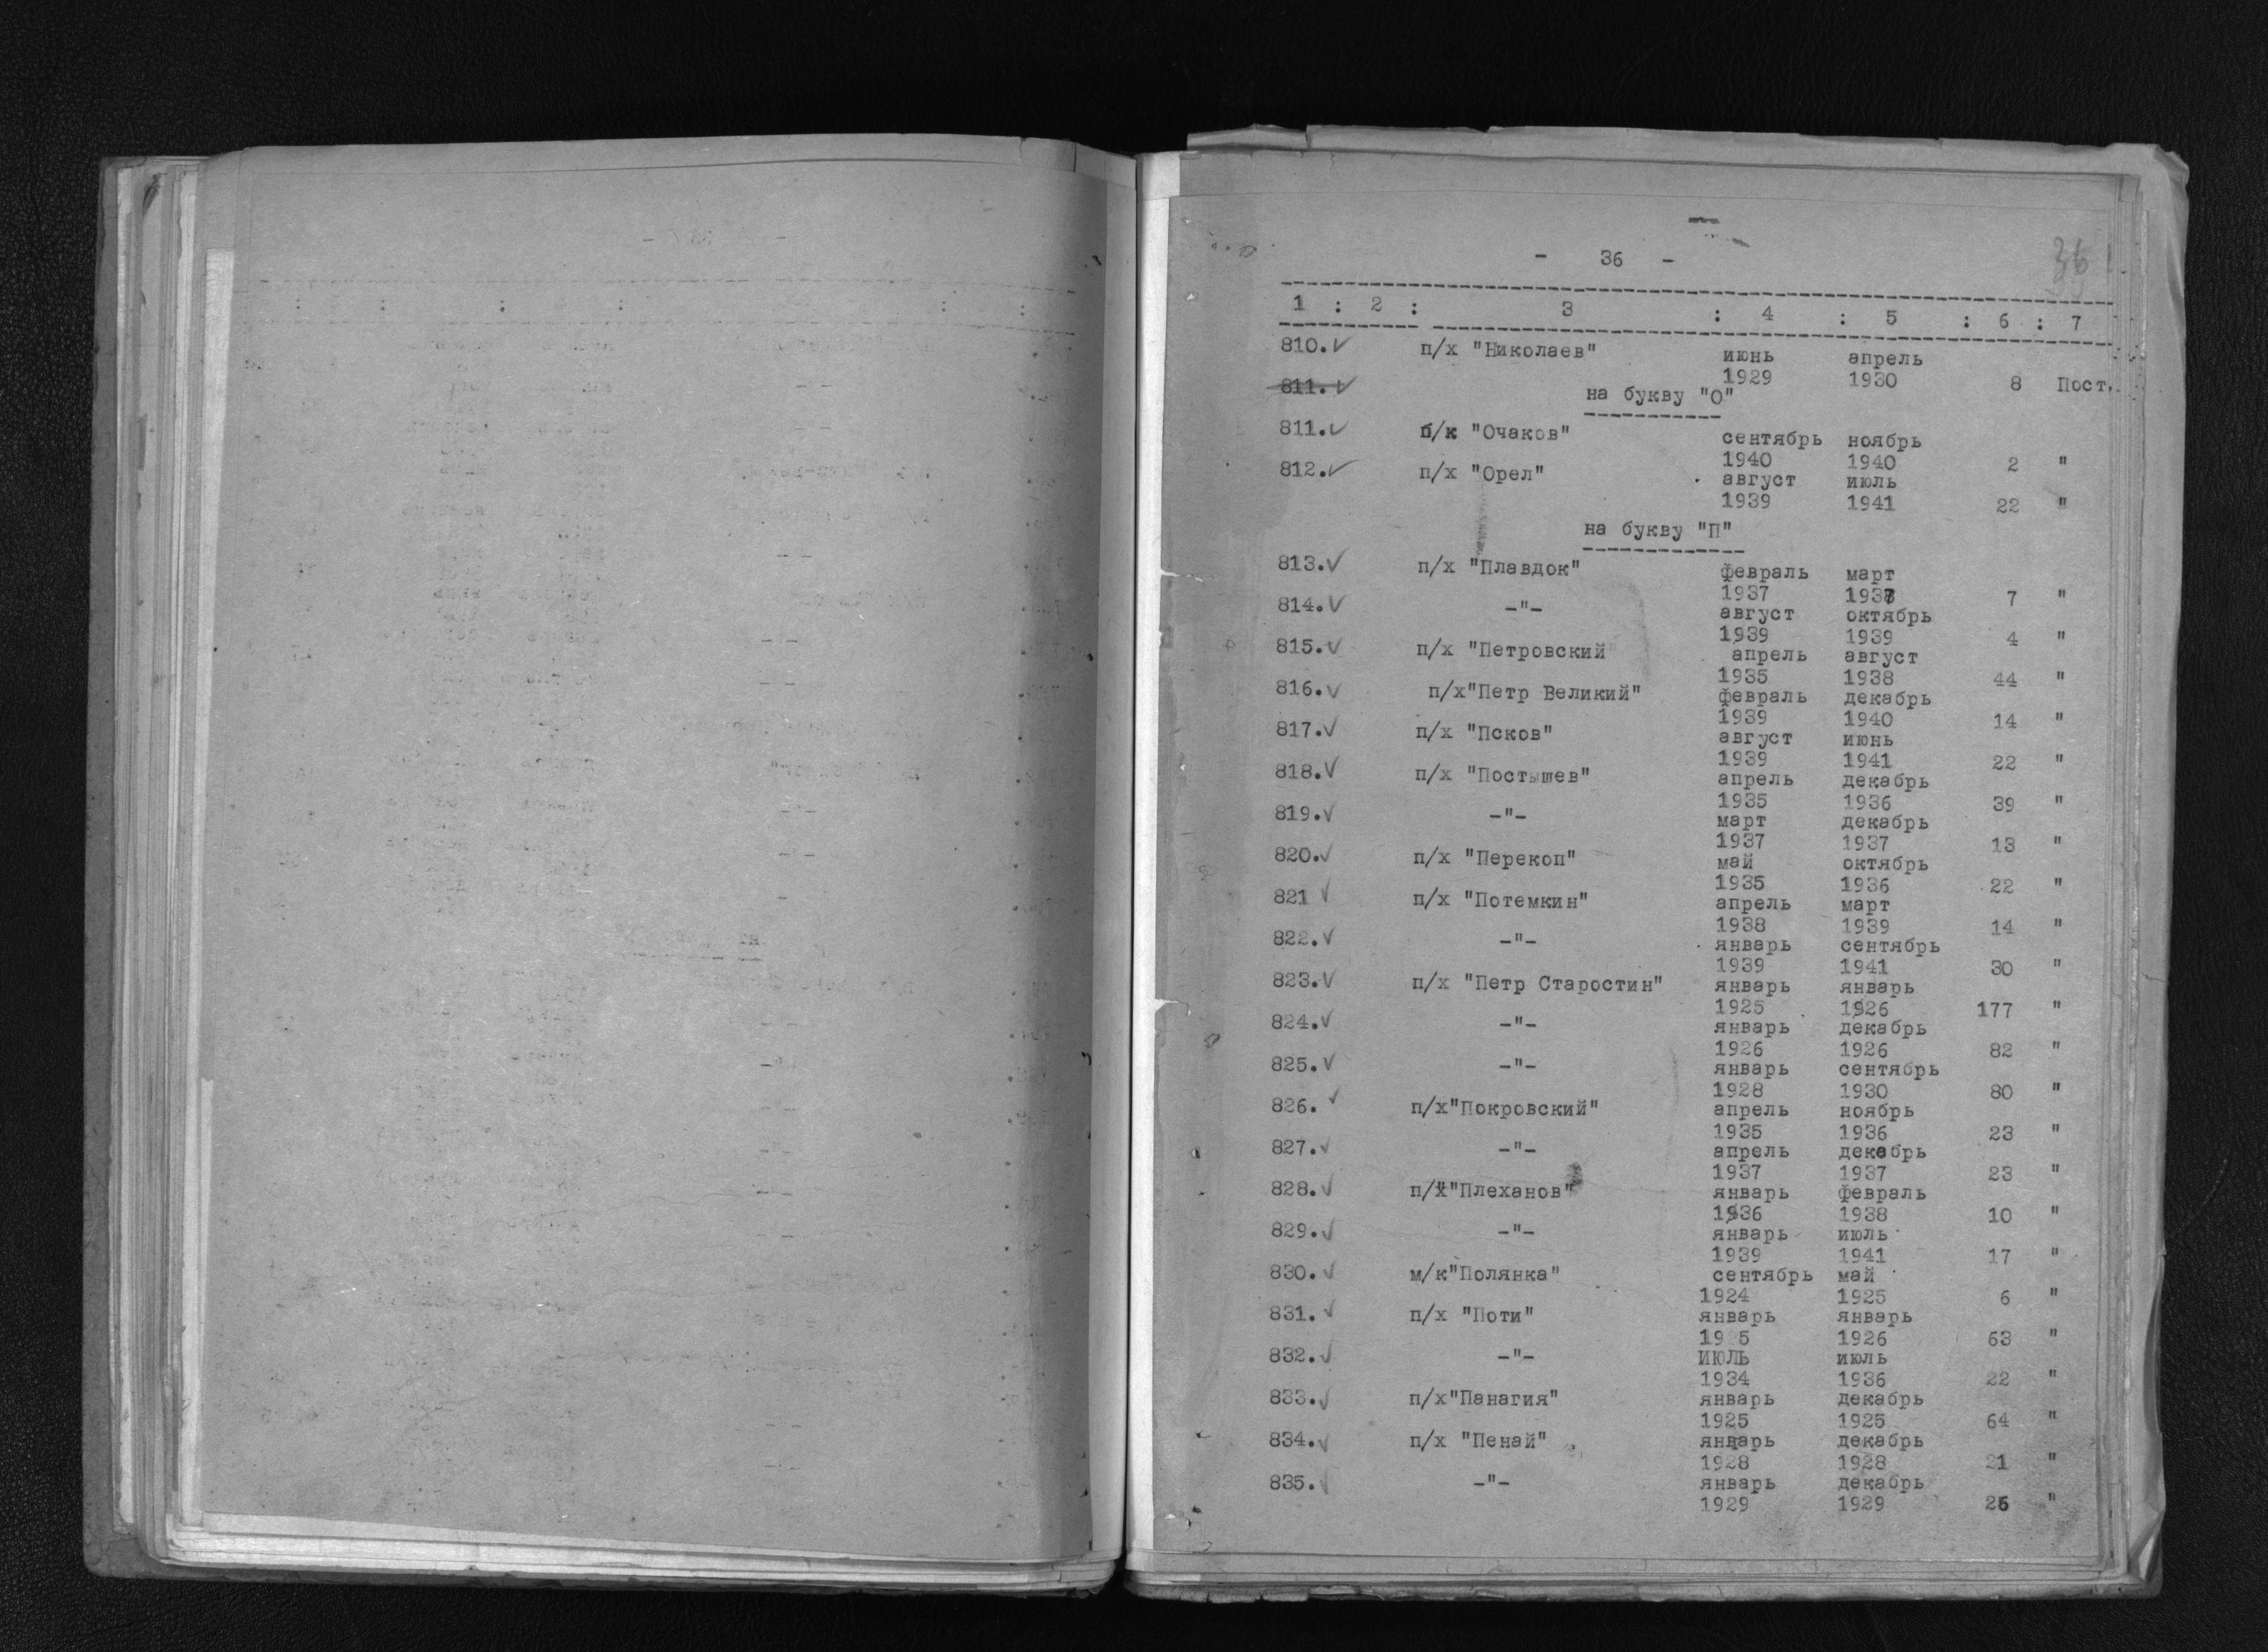 - 36 -
36
1 : 2 : 3 : 4 : 5 : 6 : 7
810. п/х "Николаев" июнь апрель
1929 1930 8 Пост.
811.
на букву "О"
811. б/к "Очаков" сентябрь ноябрь
1940 1940 2 "
812. п/х "Орел" август июль
1939 1941 22 "
на букву "П"
813. п/х "Плавдок" февраль март
1937 1937 7 "
814. -"- август октябрь
1939 1939 4 "
815. п/х "Петровский" апрель август
1935 1938 44 "
816. п/х"Петр Великий" февраль декабрь
1939 1940 14 "
817. п/х "Псков" август июнь
1939 1941 22 "
818. п/х "Постышев" апрель декабрь
1935 1936 39 "
819. -"- март декабрь
1937 1937 13 "
820. п/х "Перекоп" май октябрь
1935 1936 22 "
821 п/х "Потемкин" апрель март
1938 1939 14 "
822. -"- январь сентябрь
1939 1941 30 "
823. п/х "Петр Старостин" январь январь
1925 1926 177 "
824. -"- январь декабрь
1926 1926 82 "
825. -"- январь сентябрь
1928 1930 80 "
826. п/х"Покровский" апрель ноябрь
1935 1936 23 "
827. -"- апрель декабрь
1937 1937 23 "
828. п/х"Плеханов" январь февраль
1936 1938 10 "
829. -"- январь июль
1939 1941 17 "
830. м/к"Полянка" сентябрь май
1924 1925 6 "
831. п/х "Поти" январь январь
19 5 1926 63 "
832. -"- ИЮЛЬ июль
1934 1936 22 "
833. п/х"Панагия" январь декабрь
1925 1925 64 "
834. п/х "Пенай" январь декабрь
1928 1928 21 "
835. -"- январь декабрь
1929 1929 26 "